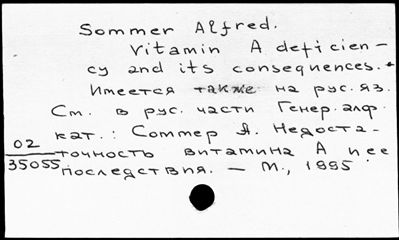 Sommer Alfred.
Vitamin A deficien-
cy and its consequences.
Имеется также на рус. яз.
См. в рус. части Генер. алф.
кат.: Соммер А. Недоста-
02
точность витамина А и ее
35055
последствия. — М., 1995